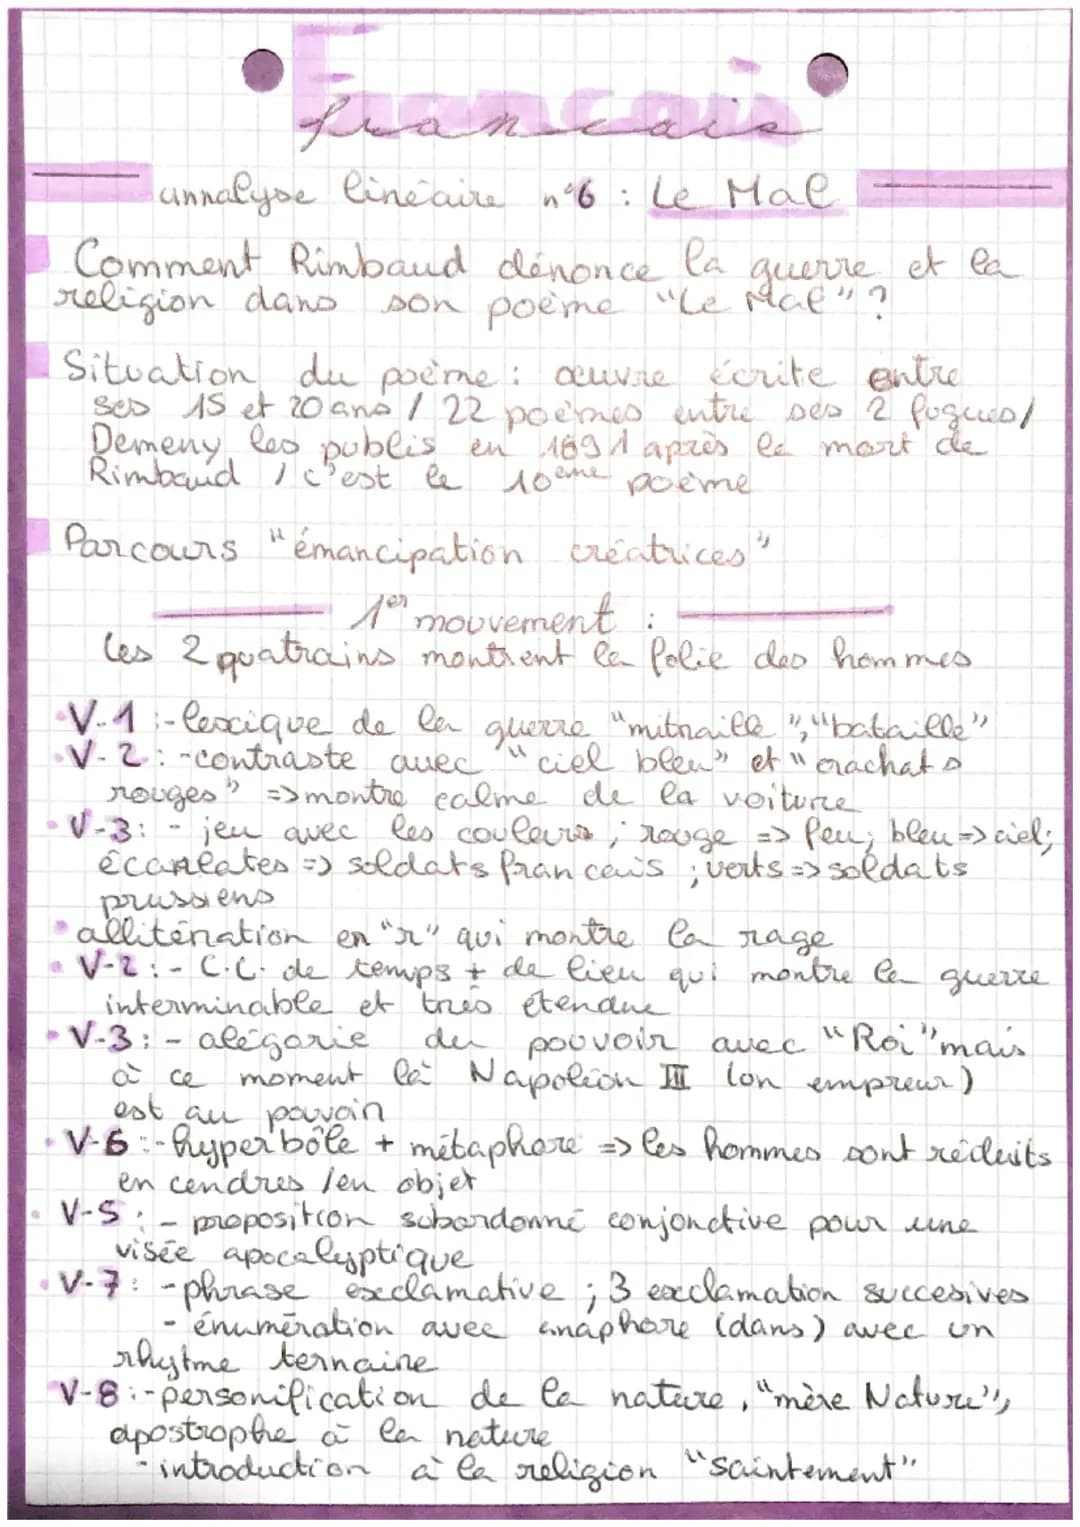 Francais
francais
annalyse linéaire n°6 : Le Mal
Comment Rimbaud dénonce la guerre et la
religion dans son poème "Le Mal" ?
Situation du poème : œuvre écrite entre
ses 15 et 20 ans / 22 poèmes entre ses 2 fugues/
Demeny les publis en 1891 après la mort de
Rimbaud / c'est le 10eme poème
Parcours "émancipation créatrices"
1er mouvement :
les 2 quatrains montrent la folie des hommes
• V-1 :- lexique de la guerre "mitraille", "bataille"
• V-2 : - contraste avec "ciel bleu" et "crachats
rouges" => montre calme de la voiture
• V-3 : - jeu avec les couleurs ; rouge => feu; bleu => ciel;
écarlates => soldats francais ; verts => soldats
prussiens
• allitération en "r" qui montre la rage
• V-2 : - C.C. de temps + de lieu qui montre la guerre
interminable et très étendue
• V-3 : - alégorie du pouvoir avec "Roi" mais
à ce moment là Napoléon III (on empreur)
est au pouvoir
• V-6 :- hyperbôle + métaphore => les hommes sont réduits
en cendres / en objet
• V-5 : - proposition subordonné conjonctive pour une
visée apocalyptique
• V-7 : - phrase exclamative ; 3 exclamation succesives
- énumération avec anaphore (dans) avec un
rhytme ternaire
V-8 :- personification de la nature, "mère Nature",
apostrophe à la nature
- introduction à la religion "saintement"